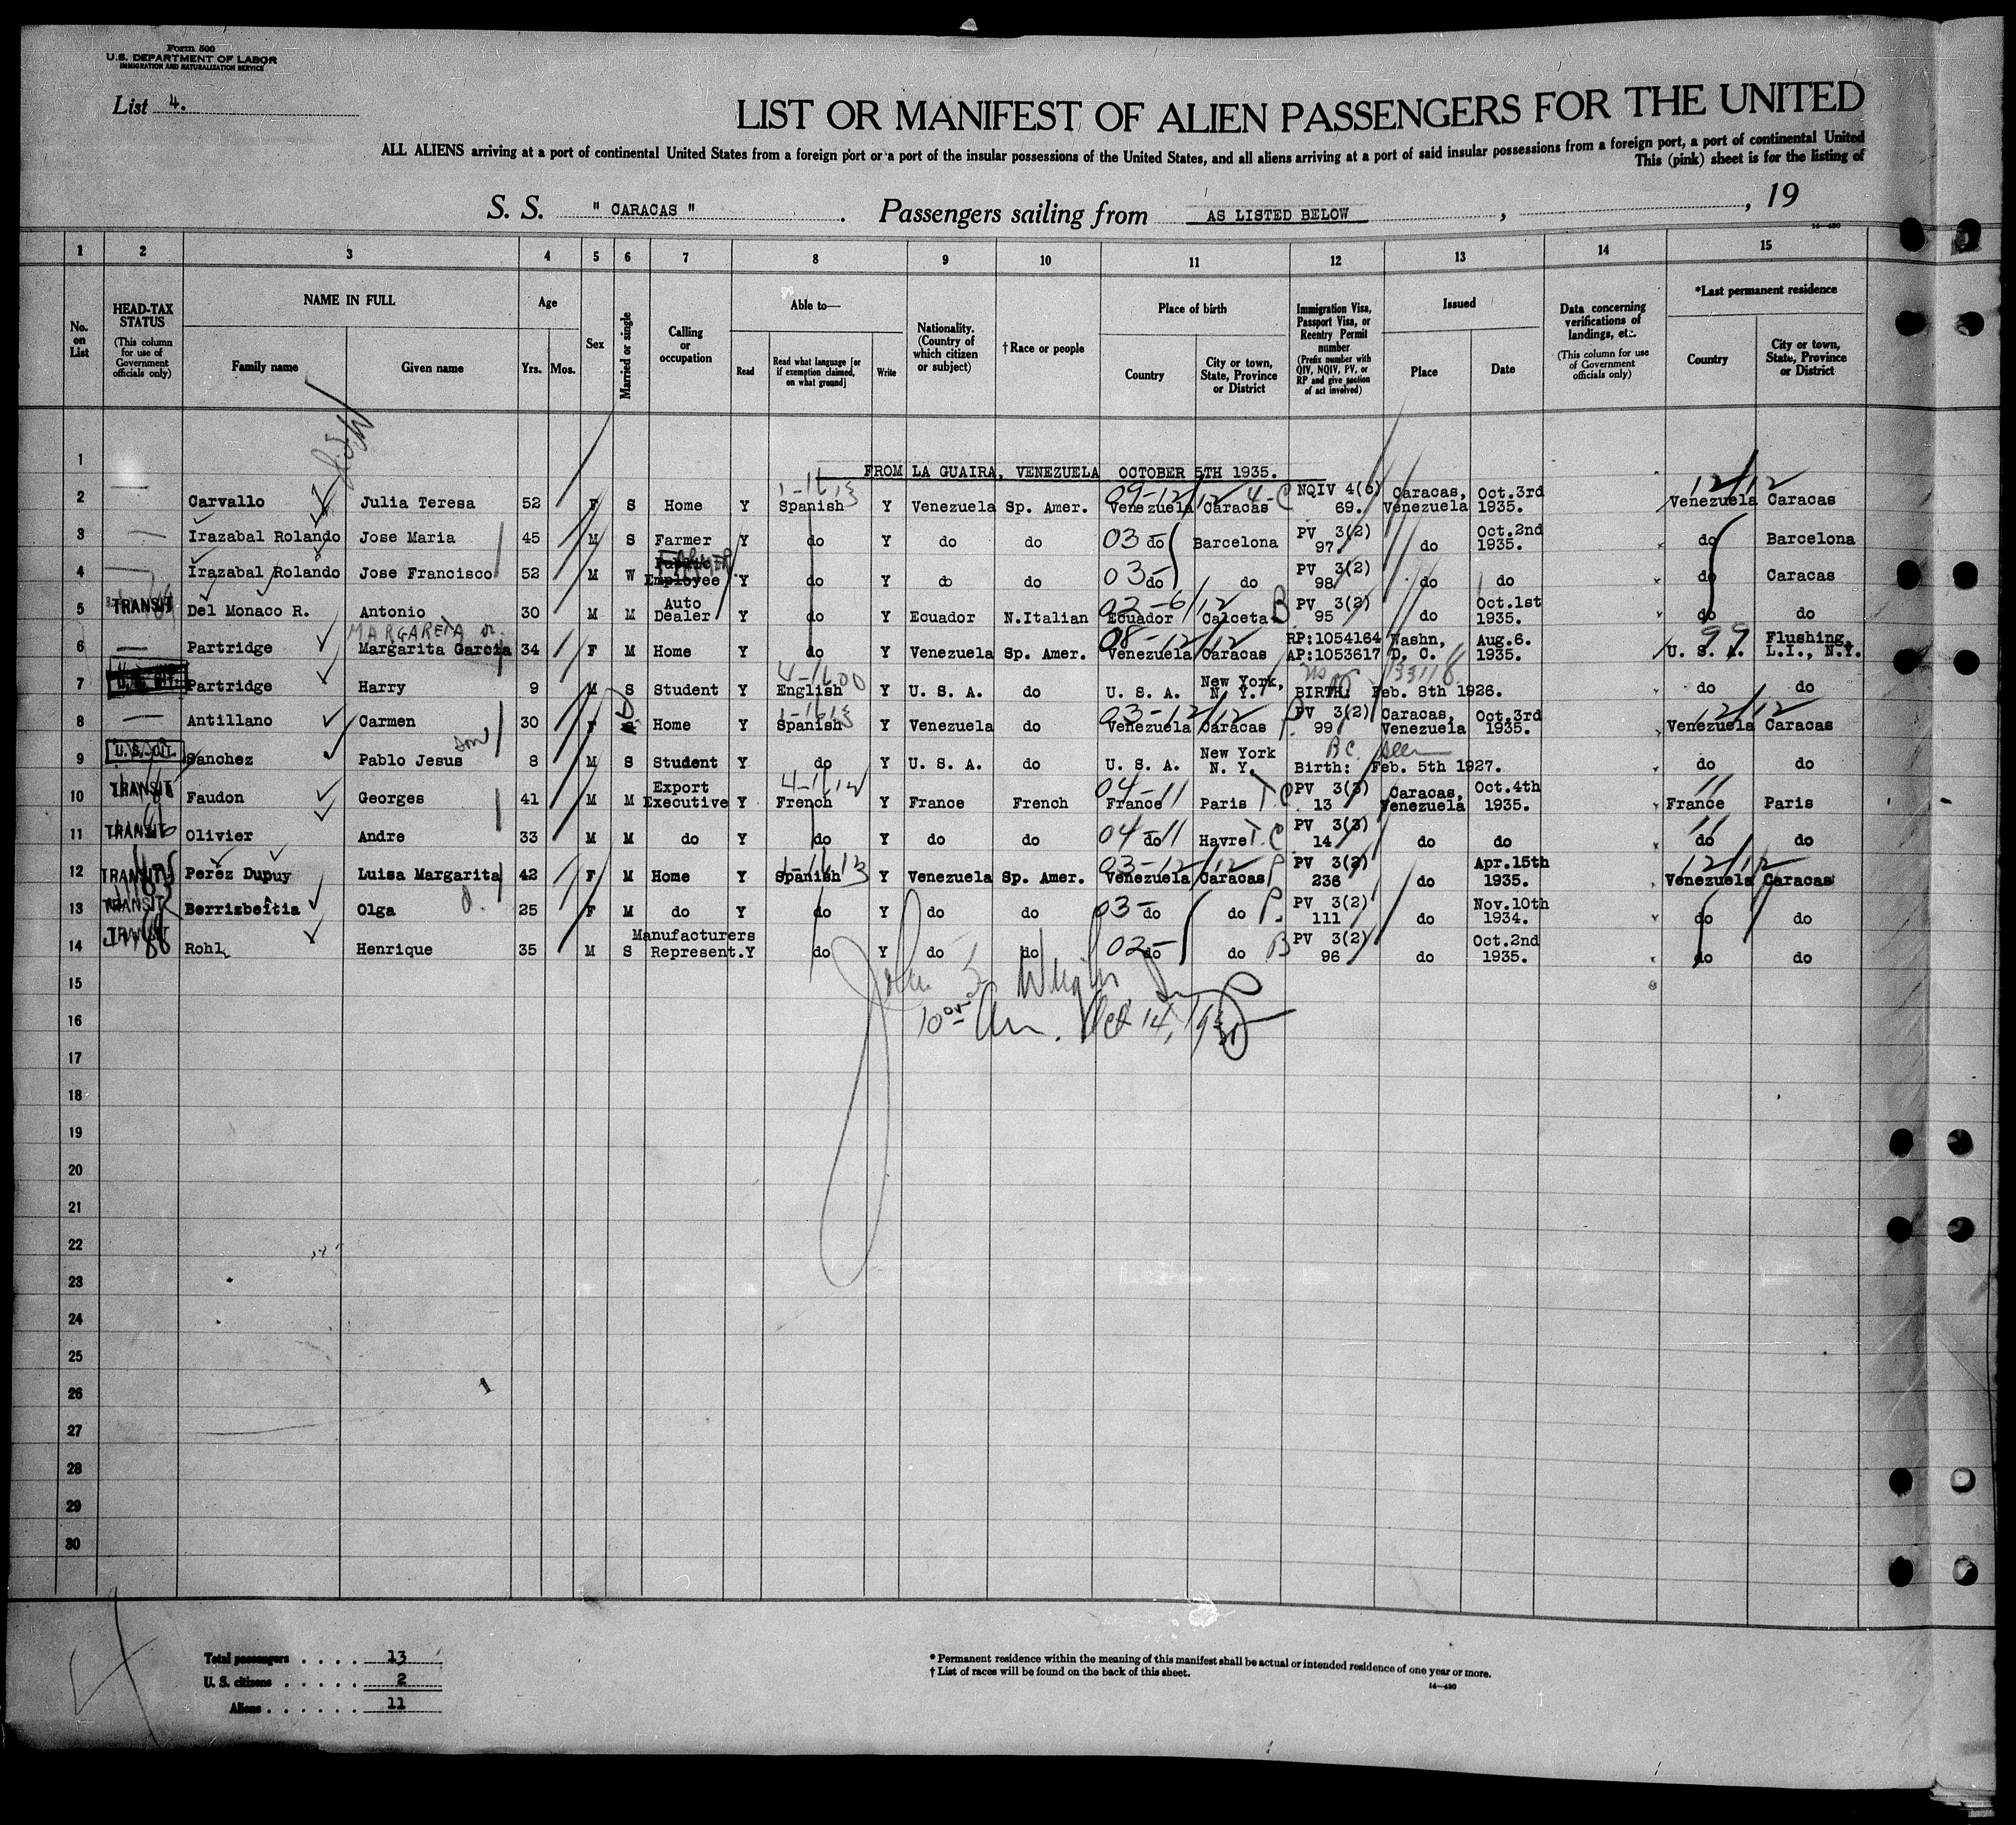 Form 500
U.S. DEPARTMENT OF LABOR
IMMIGRATION AND NATURALIZATION SERVICE
List 4.
LIST OR MANIFEST OF ALIEN PASSENGERS FOR THE UNITED
ALL ALIENS arriving at a port of continental United States from a foreign port or a port of the insular possessions of the United States, and all aliens arriving at a port of said insular possessions from a foreign port, a port of continental United
This (pink) sheet is for the listing of
S. S. " CARACAS " . Passengers sailing from AS LISTED BELOW , , 19
14—430
1 2 3 4 5 6 7 8 9 10 11 12 13 14 15
No. on List
HEAD-TAX STATUS (This column for use of Government officials only)
NAME IN FULL Family name Given name
Age Yrs. Mos.
Sex
Married or single
Calling or occupation
Able to— Read Read what language [or if exemption claimed, on what ground] Write
Nationality. (Country of which citizen or subject)
†Race or people
Place of birth Country City or town, State, Province or District
Immigration Visa, Passport Visa, or Reentry Permit number (Prefix number with QIV, NQIV, PV, or RP and give section of act involved)
Issued Place Date
Data concerning verifications of landings, etc. (This column for use of Government officials only)
*Last permanent residence Country City or town, State, Province or District
1 FROM LA GUAIRA, VENEZUELA OCTOBER 5TH 1935.
2 Carvallo Julia Teresa 52 F S Home Y Spanish Y Venezuela Sp. Amer. Venezuela Caracas NQIV 4(6) 69. Caracas, Venezuela Oct.3rd 1935. Venezuela Caracas
3 Irazabal Rolando Jose Maria 45 M S Farmer Y do Y do do 03 do Barcelona PV 3(2) 97 do Oct.2nd 1935. do Barcelona
4 Irazabal Rolando Jose Francisco 52 M W Public Employee Y do Y do do 03 do do PV 3(2) 98 do do do Caracas
5 TRANSIT Del Monaco R. Antonio 30 M M Auto Dealer Y do Y Ecuador N.Italian Ecuador Calceta B PV 3(2) 95 do Oct.1st 1935. do do
6 Partridge MARGARETA or Margarita Garcia 34 F M Home Y do Y Venezuela Sp. Amer. Venezuela Caracas RP:1054164 AP:1053617 Washn, D. C. Aug.6. 1935. U. S. A. Flushing, L.I., N.Y.
7 Partridge Harry 9 M S Student Y English Y U. S. A. do U. S. A. New York, N. Y. BIRTH: Feb. 8th 1926. do do
8 Antillano Carmen 30 F Home Y Spanish Y Venezuela do Venezuela Caracas PV 3(2) 99 Caracas, Venezuela Oct.3rd 1935. Venezuela Caracas
9 U.S. CIT. Sanchez Pablo Jesus son 8 M S Student Y do Y U. S. A. do U. S. A. New York N. Y. BC seen Birth: Feb. 5th 1927. do do
10 TRANSIT Faudon Georges 41 M M Export Executive Y French Y France French France Paris PV 3(3) 13 Caracas, Venezuela Oct.4th 1935. France Paris
11 TRANSIT Olivier Andre 33 M M do Y do Y do do do Havre PV 3(3) 14 do do do do
12 TRANSIT Perez Dupuy Luisa Margarita 42 F M Home Y Spanish Y Venezuela Sp. Amer. Venezuela Caracas PV 3(2) 236 do Apr.15th 1935. Venezuela Caracas
13 TRANSIT Berrizbeitia Olga 25 F M do Y do Y do do 03 do do PV 3(2) 111 do Nov.10th 1934. do do
14 TRANSIT Rohl Henrique 35 M S Manufacturers Represent. Y do Y do do 02 do do B PV 3(2) 96 do Oct.2nd 1935. do do
15
16 Oct 14, 1935
17
18
19
20
21
22
23
24
25
26
27
28
29
30
Total passengers . . . . 13
U. S. citizens . . . . . 2
Aliens . . . . . . 11
* Permanent residence within the meaning of this manifest shall be actual or intended residence of one year or more.
† List of races will be found on the back of this sheet.
14—430